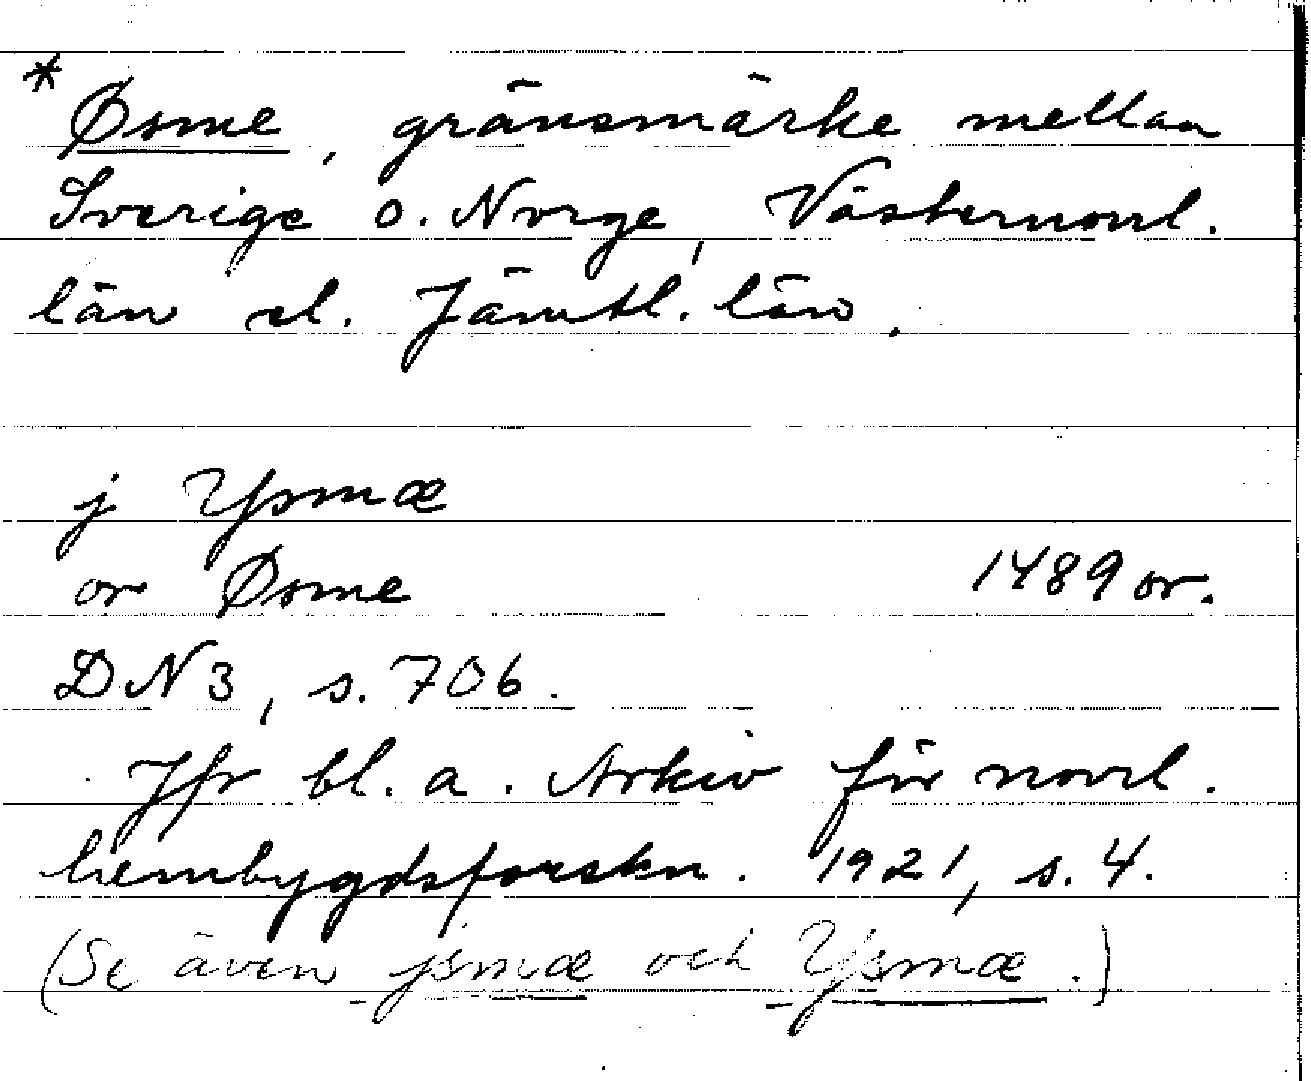 * Øsme, gränsmärke mellan
Sverige o. Norge, Västernorrl.
län el. Jämtl. län.
j Ysmæ
or Øsme 1489 or.
DN 3, s. 706.
Jfr bl. a. Arkiv för norrl.
hembygdsforskn. 1921, s. 4.
(Se även jsmæ och Ysmæ.)